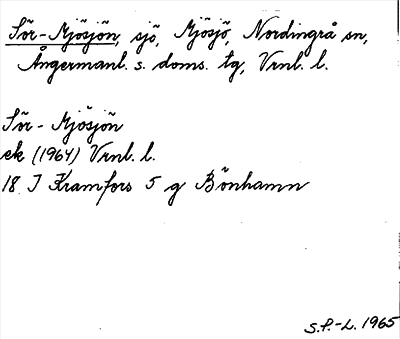 Sör-Mjösjön, sjö, Mjösjö, Nordingrå sn,
Ångermanl. s. doms. tg, Vrnl. l.
Sör-Mjösjön
ek (1964) Vrnl. l.
18 I Kramfors 5 g Bönhamn
S.P.-L. 1965